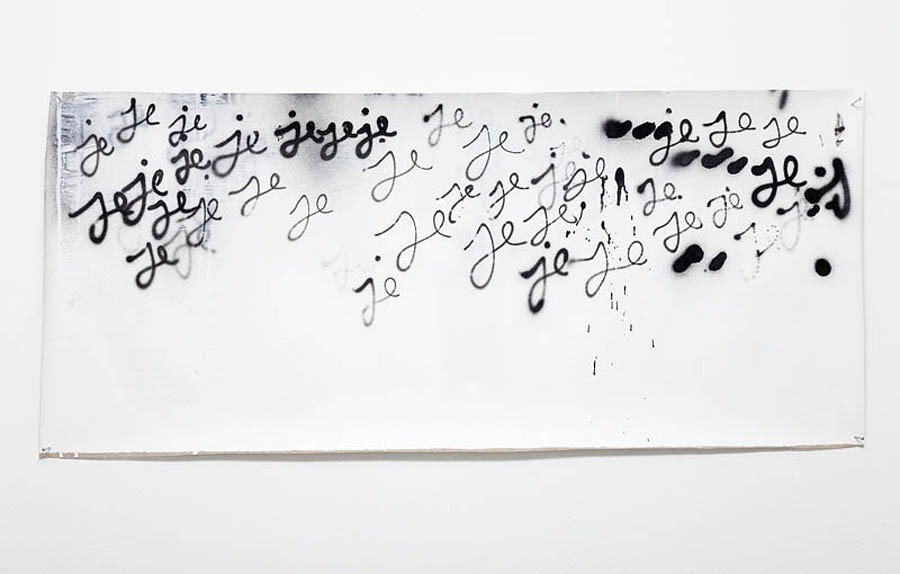 je je je je jejeje je je je. je je je
je je je je je je
je je je je je je je je je
je je je je
je je je
je